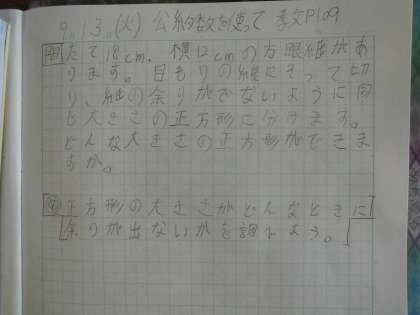 9.13.(火) 公約数を使って 教文P109
問 たて18cm、横12cmの方眼紙があ
ります。目もりの線にそって切
り、紙の余りがでないように同
じ大きさの正方形に分けます。
どんな大きさの正方形ができま
すか。
正方形の大きさがどんなときに
余りが出ないかを調べよう。